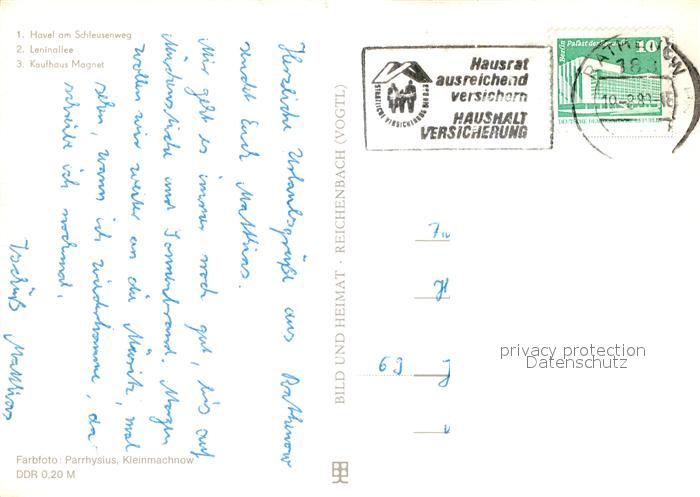 1. Havel am Schleusenweg
2. Leninallee
3. Kaufhaus Magnet
Herzliche Urlaubsgrüße aus Rathenow
sendet Euch Matthias.
Mir geht es immer noch gut, bis auf
Mückenstiche und Sonnenbrand. Morgen
wollen wir weiter an die Müritz, mal
sehn, wann ich wiederkomme, da
schreibe ich nochmal.
Tschüß Matthias
Farbfoto: Parrhysius, Kleinmachnow
DDR 0,20 M
BILD UND HEIMAT · REICHENBACH (VOGTL)
Hausrat
ausreichend
versichern
HAUSHALT
VERSICHERUNG
STAATLICHE VERSICHERUNG DER DDR
Berlin, Palast der Republik
10
DEUTSCHE DEMOKRATISCHE REPUBLIK
RATHENOW
183
69
privacy protection
Datenschutz